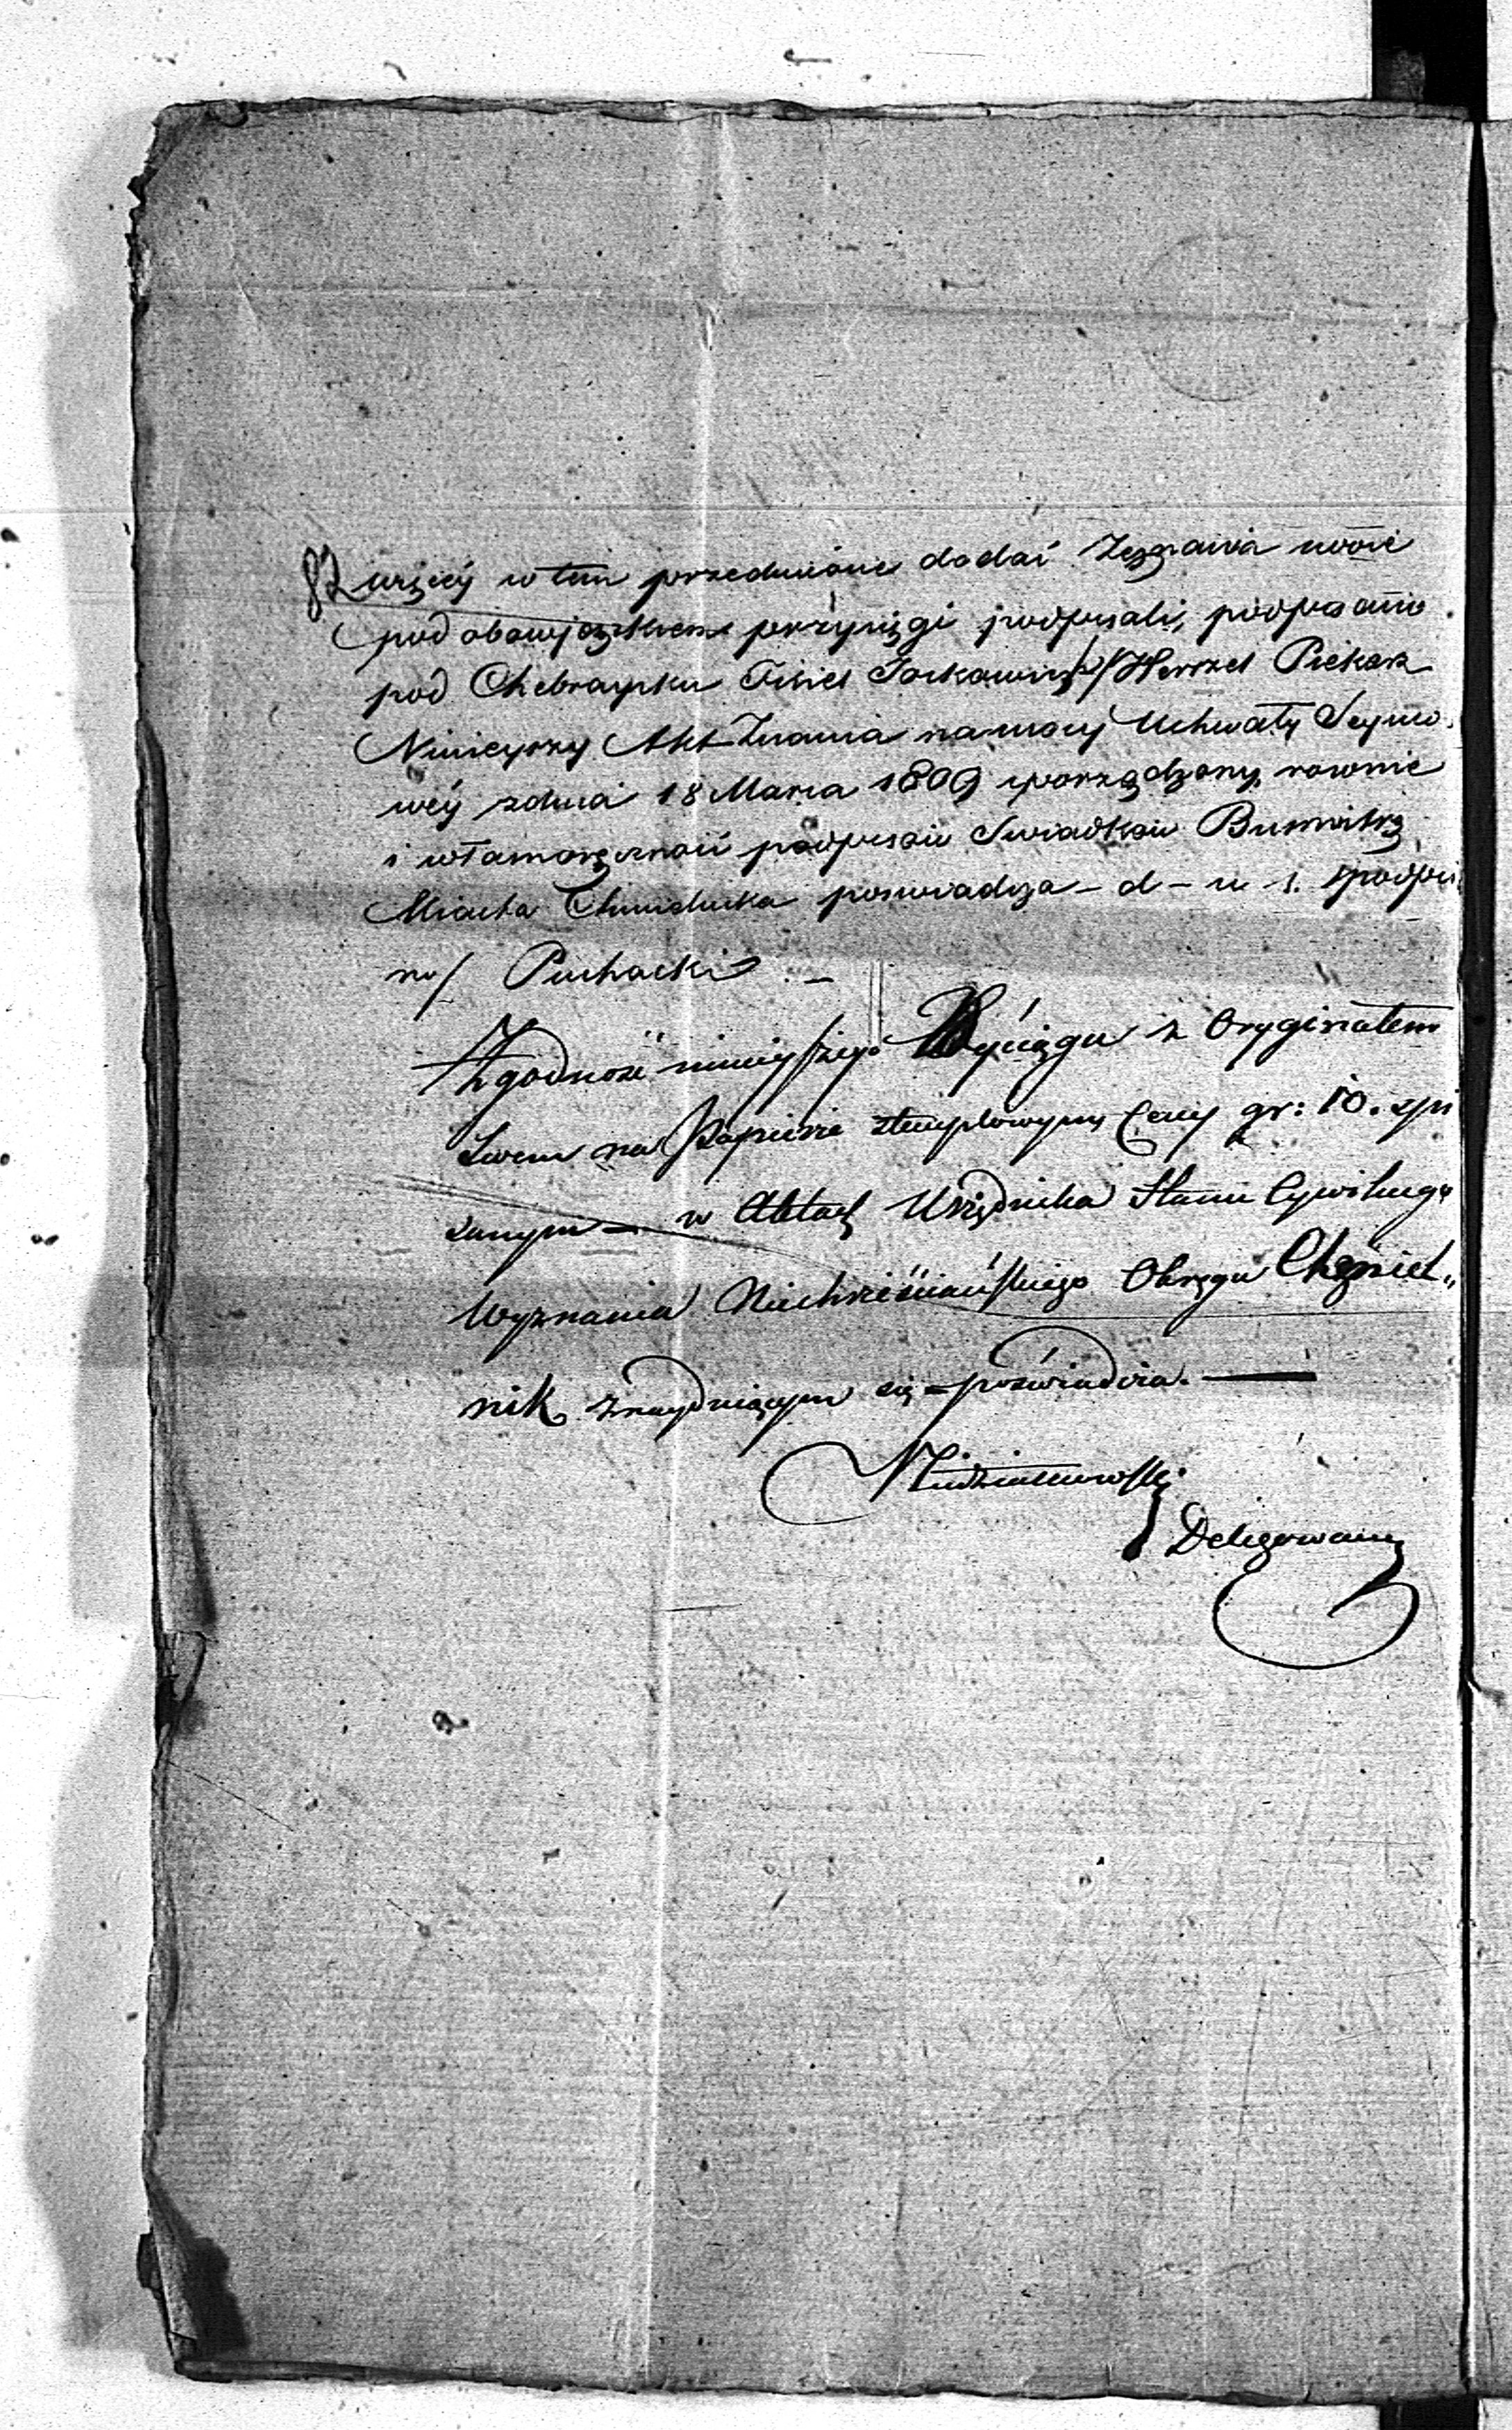 więcej w tem przedmiocie dodać Zeznania swoie
pod obowjązkiem przysięgi podpisali, podpisano
pod Chebraysku Fisiel Jockowicz /Herszel Piekarz
Ninieyszy Akt Znania na mocy Uchwały Seymo
wéy zdnia 18 Marca 1809 sporządzony, rownie
i własnoręczność podpisow Swiadkow Burmistrz
Miasta Chmielnika poswiadcza – d – u – s. /podpisa
no/ Puchacki –
Zgodność ninieyszego Wyciągu z Oryginałem
Swem na Papierze stemplowym Ceny gr: 10. spi
sanym – w Aktach Urzędnika Stanu Cywilnego
Wyznania Niechrześciańskiego Okręgu Chmiel„
nik znayduiącym się – poświadcza. –
Delegowany